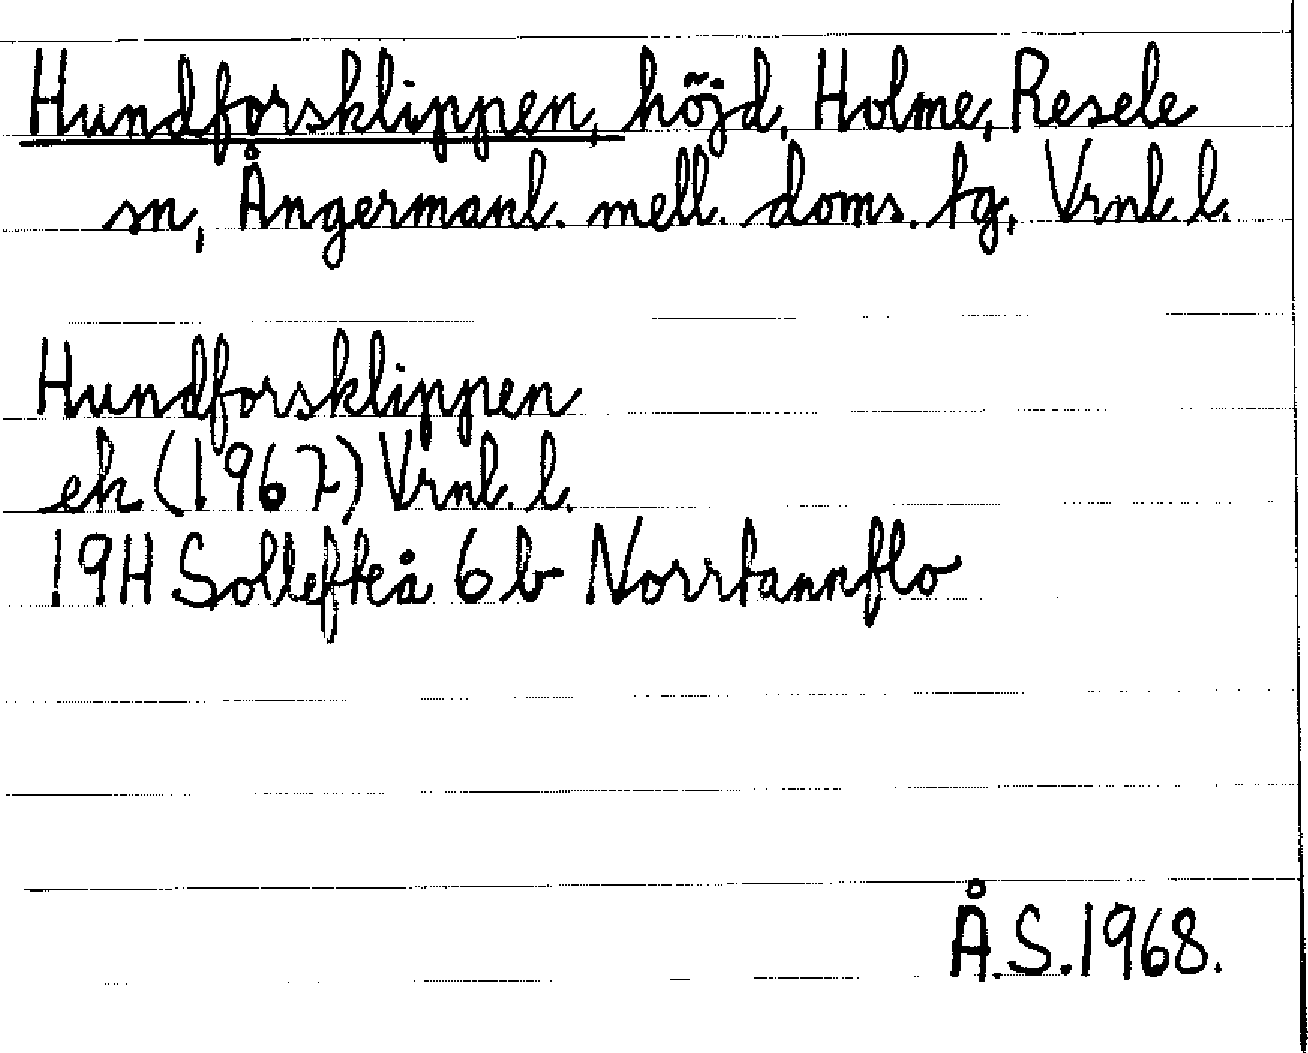 Hundforsklippen, höjd, Holme, Resele
sn, Ångermanl. mell. doms. tg, Vrnl. l.
Hundforsklippen
ek (1967) Vrnl. l.
19H Sollefteå 6 b Norrtannflo
Å.S.1968.